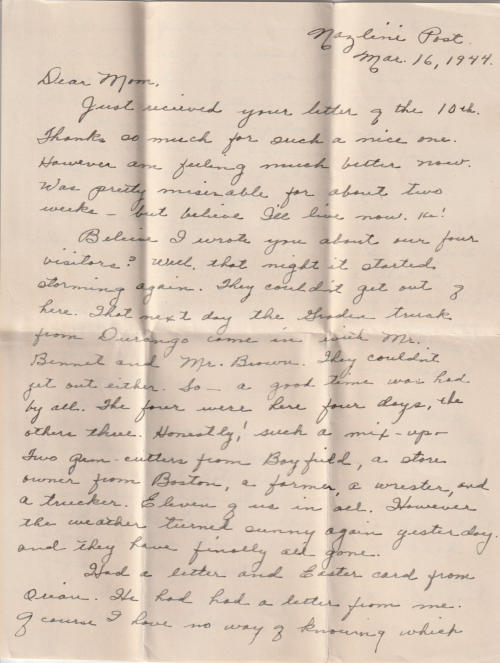 Nazlini Post.
Mar. 16, 1944.
Dear Mom,
Just recieved your letter of the 10th.
Thanks so much for such a nice one.
However am feeling much better now.
Was pretty miserable for about two
weeks – but believe I'll live now.
Believe I wrote you about our four
visitors? Well, that night it started
storming again. They couldn't get out of
here. That next day the truck
from Durango come in with Mr.
Bennet and Mr. Brown. They couldn't
get out either. So – a good time was had
by all. The four were here four days, the
others three. Honestly! such a mix-up –
Two gum-cutters from Bayfield, a store
owner from Boston, a farmer, a wrester, and
a trucker. Eleven of us in all. However
the weather turned sunny again yesterday.
and they have finally all gone.
Had a letter and Easter card from
. He had had a letter from me.
Of course I have no way of knowing which